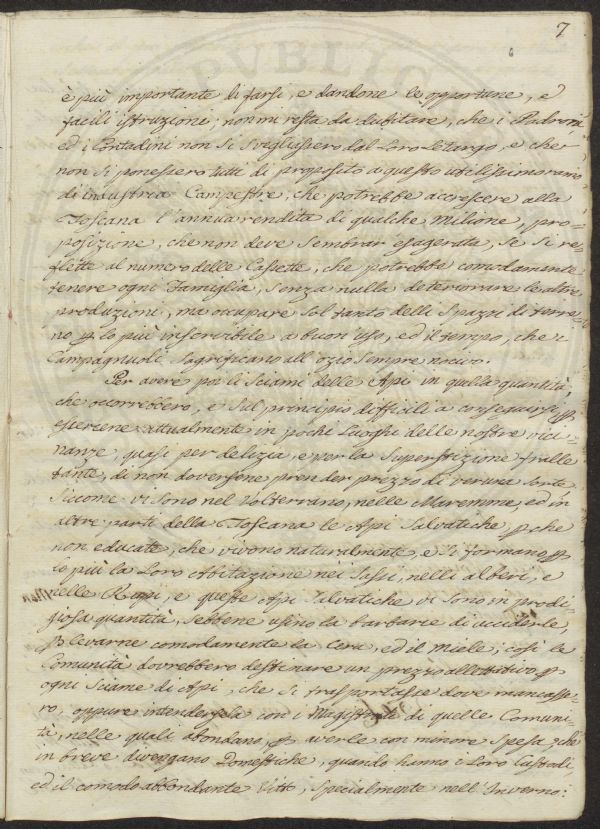 7
è più importante di farsi, e dandone le opportune, e
facili istruzioni, non mi resta da dubitare, che i Padroni
ed i Contadini non si svegliassero dal Loro Letargo, e che
non si ponessero tutti di proposito a questo utilissimo ramo
di industria Campestre, che potrebbe accrescere alla
Toscana l'annua rendita di qualche Milione, pro=
posizione, che non deve sembrar esagerata, se si re=
flette al numero delle Cassette, che potrebbe comodamente
tenere ogni Famiglia, senza nulla deteriorare le altre
produzioni, ma occupare sol tanto delli spazzi di terre=
no p lo più inservibile a buon'uso, ed il tempo, che i
Campagnuoli sagrificano all'ozio sempre nocivo.
Per avere poi li Sciami delle Api in quella quantità,
che occorrebbero, e sul principio difficili a conseguirsi p
esservene attualmente in pochi Luoghi delle nostre vici=
nanze, quasi per delizia, e per la Superstizione fralle
tante, di non doversene prender prezzo di veruna sorte
Siccome vi sono nel Volterrano, nelle Maremme, ed in
altre parti della Toscana le Api Salvatiche, p che
non educate, che vivono naturalmente, e si formano p
lo più la Loro Abitazione nei Sassi, nelli alberi, e
nelle Rupi, e queste Api Salvatiche vi sono in prodi=
giosa quantità, sebbene usino la barbarie di ucciderle,
p levarne comodamente la Cera, ed il Miele; così le
Comunità dovrebbero destinare un prezzo allettativo p
ogni Sciame di Api, che si trasportasse dove mancasse=
ro, oppure intendersela con i Magistrati di quelle Comuni=
tà, nelle quali abondano, p averle con minore spesa, che
in breve divengano Domestiche, quando hanno i Loro Custodi,
ed il comodo abbondante Vitto, specialmente nell'Inverno: